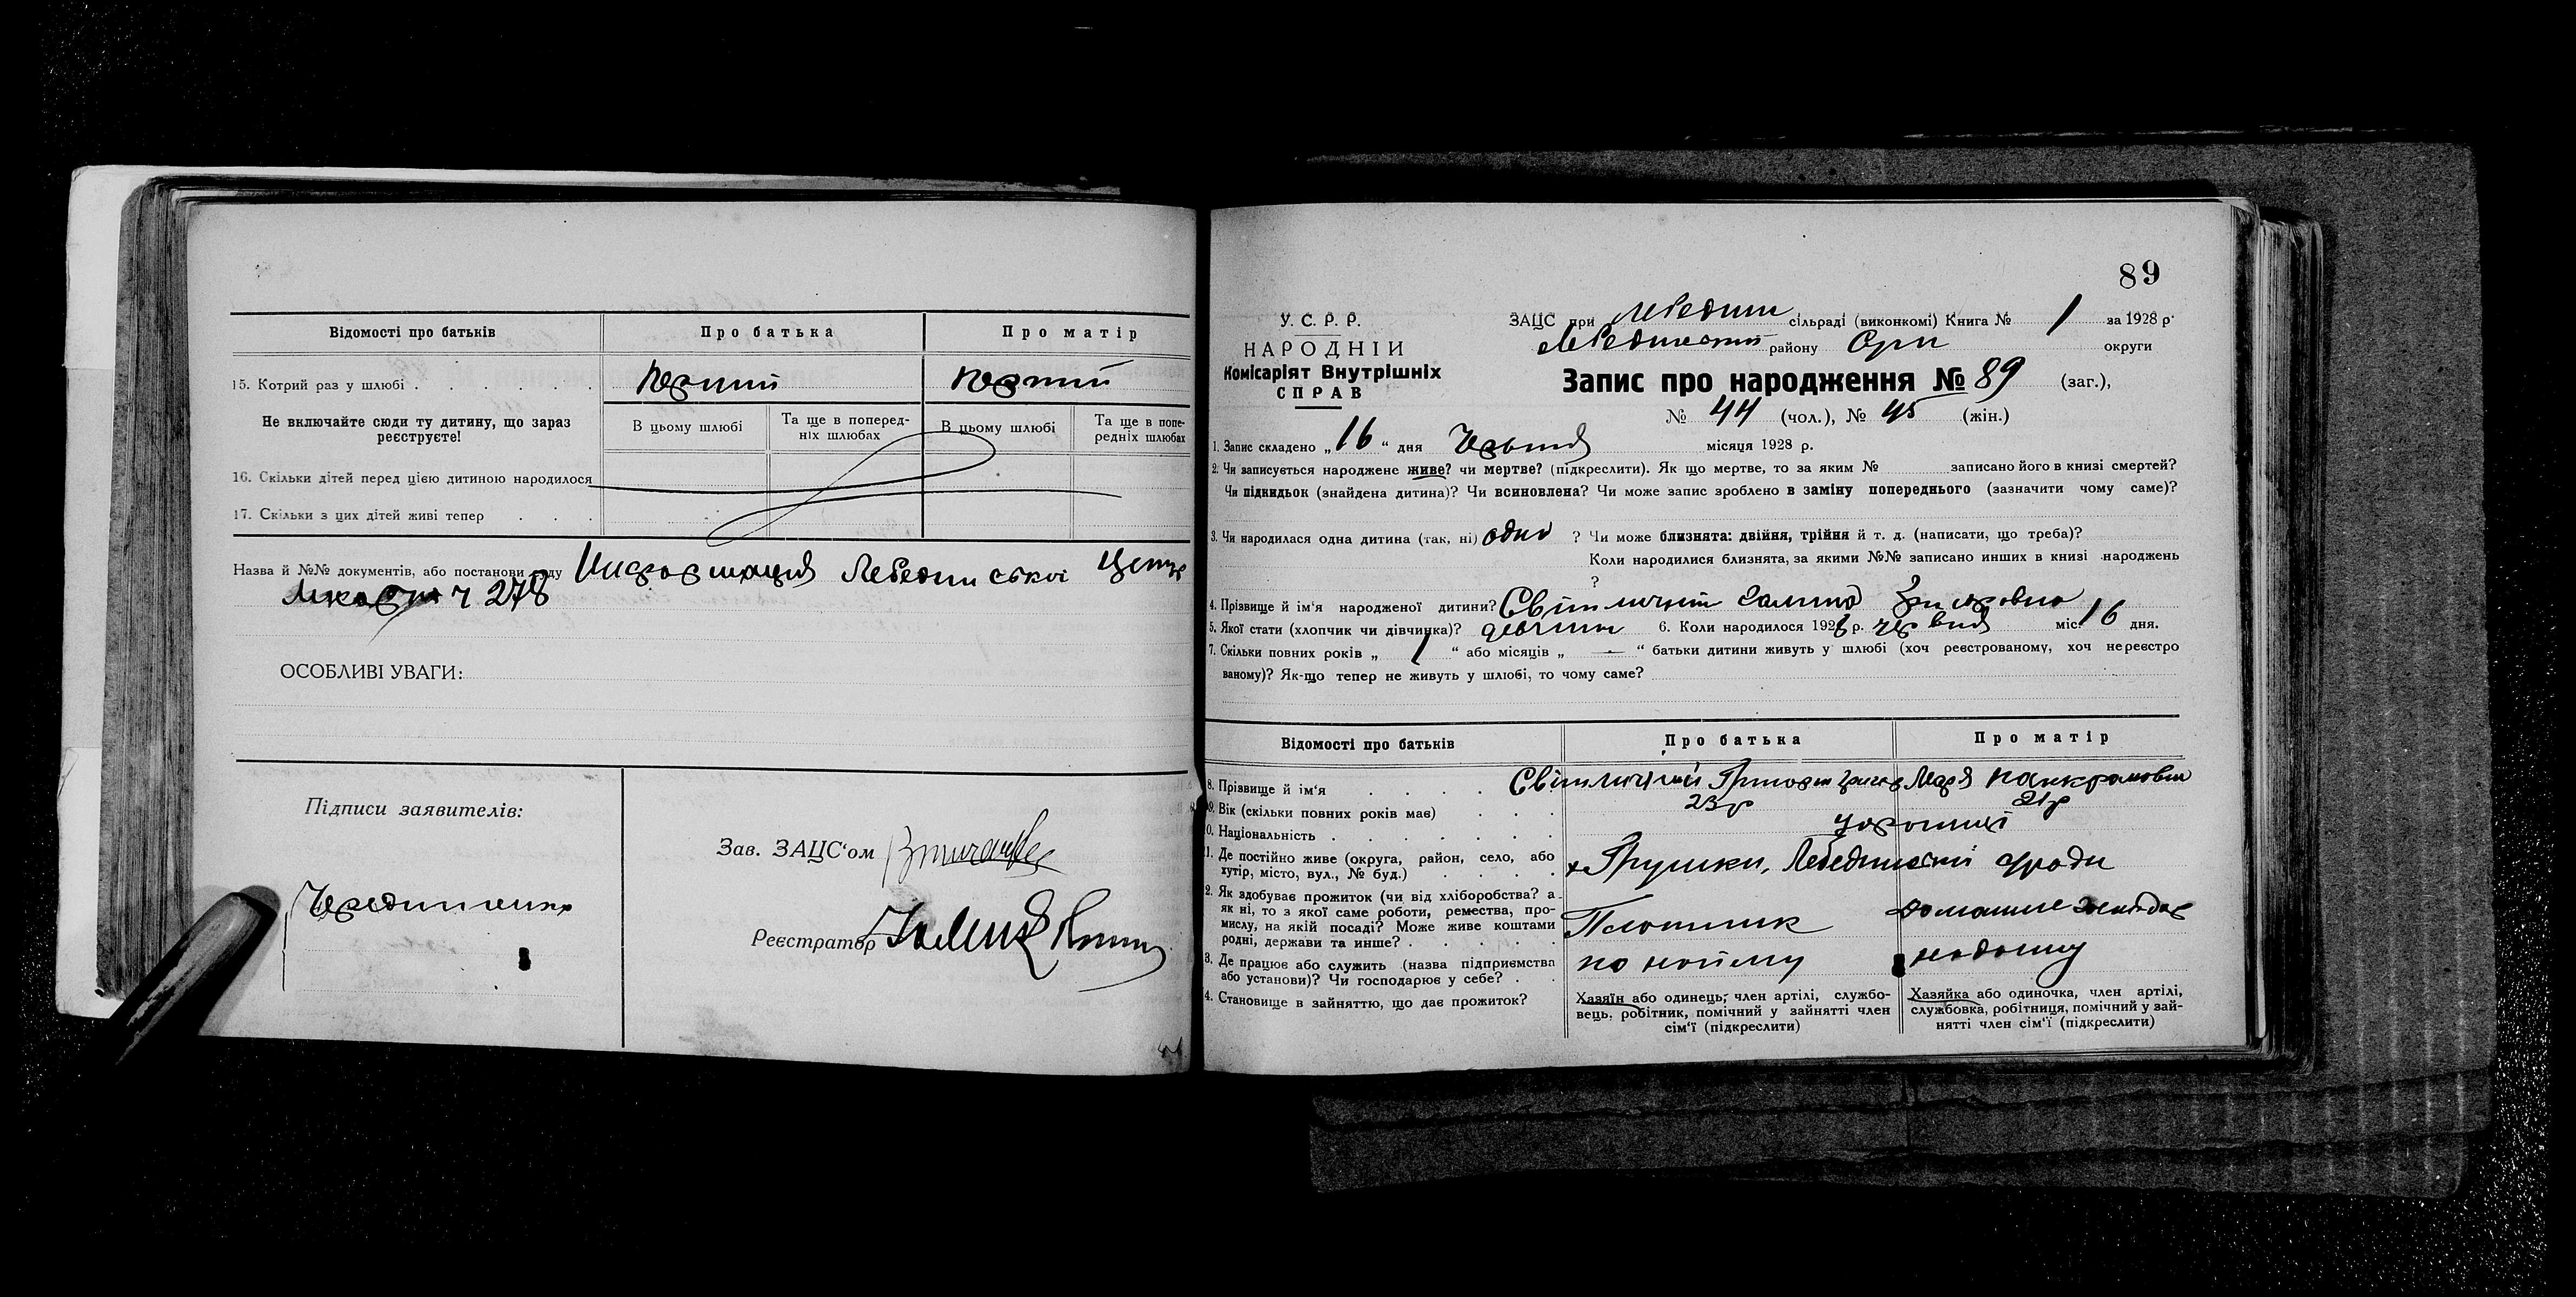 Відомості про батьків
Про батька
Про матір
15. Котрий раз у шлюбі
Перший
Перший
Не включайте сюди ту дитину, що зараз реєструєте!
В цьому шлюбі
Та ще в поперед-
ніх шлюбах
В цьому шлюбі
Та ще в попе-
редніх шлюбах
16. Скільки дітей перед цією дитиною народилося
17. Скільки з цих дітей живі тепер
Назва й №№ документів, або постанови суду
Лебединської
ч 278
ОСОБЛИВІ УВАГИ:
Підписи заявителів:
Зав. ЗАЦС'ом
Реєстратор
89
У. С. Р. Р.
НАРОДНІЙ
Комісаріят Внутрішніх
СПРАВ
ЗАЦС при Лебедин сільраді (виконкомі) Книга № 1 за 1928 р.
району округи
Запис про народження № 89 (заг.),
№ 44 (чол.), № 45 (жін.)
1. Запис складено „16" дня Червня місяця 1928 р.
2. Чи записується народжене живе? чи мертве? (підкреслити). Як що мертве, то за яким № записано його в книзі смертей?
Чи підкидьок (знайдена дитина)? Чи всиновлена? Чи може запис зроблено в заміну попереднього (зазначити чому саме)?
3. Чи народилася одна дитина (так, ні) одна ? Чи може близнята: двійня, трійня й т. д. (написати, що треба)?
Коли народилися близнята, за якими №№ записано инших в книзі народжень
?
4. Прізвище й ім'я народженої дитини? Галина
5. Якої стати (хлопчик чи дівчинка)? 6. Коли народилося 1928 р. червня міс. 16 дня.
7. Скільки повних років „ 1 " або місяців „ — " батьки дитини живуть у шлюбі (хоч реєстрованому, хоч нереєстро
ваному)? Як-що тепер не живуть у шлюбі, то чому саме?
Відомості про батьків
Про батька
Про матір
8. Прізвище й ім'я
Світличний Григорій
Марія
9. Вік (скільки повних років має)
23 р
21 р
0. Національність
1. Де постійно живе (округа, район, село, або
хутір, місто, вул., № буд.)
х Грушки, Лебединської
2. Як здобуває прожиток (чи від хліборобства? а
як ні, то з якої саме роботи, ремества, про-
мислу, на якій посаді? Може живе коштами
родні, держави та инше?
Плотник
3. Де працює або служить (назва підприємства
або установи)? Чи господарює у себе?
по найму
на дому
4. Становище в зайняттю, що дає прожиток?
Хазяїн або одинець, член артілі, службо-
вець, робітник, помічний у зайнятті член
сім'ї (підкреслити)
Хазяйка або одиночка, член артілі,
службовка, робітниця, помічний у зай-
нятті член сім'ї (підкреслити)